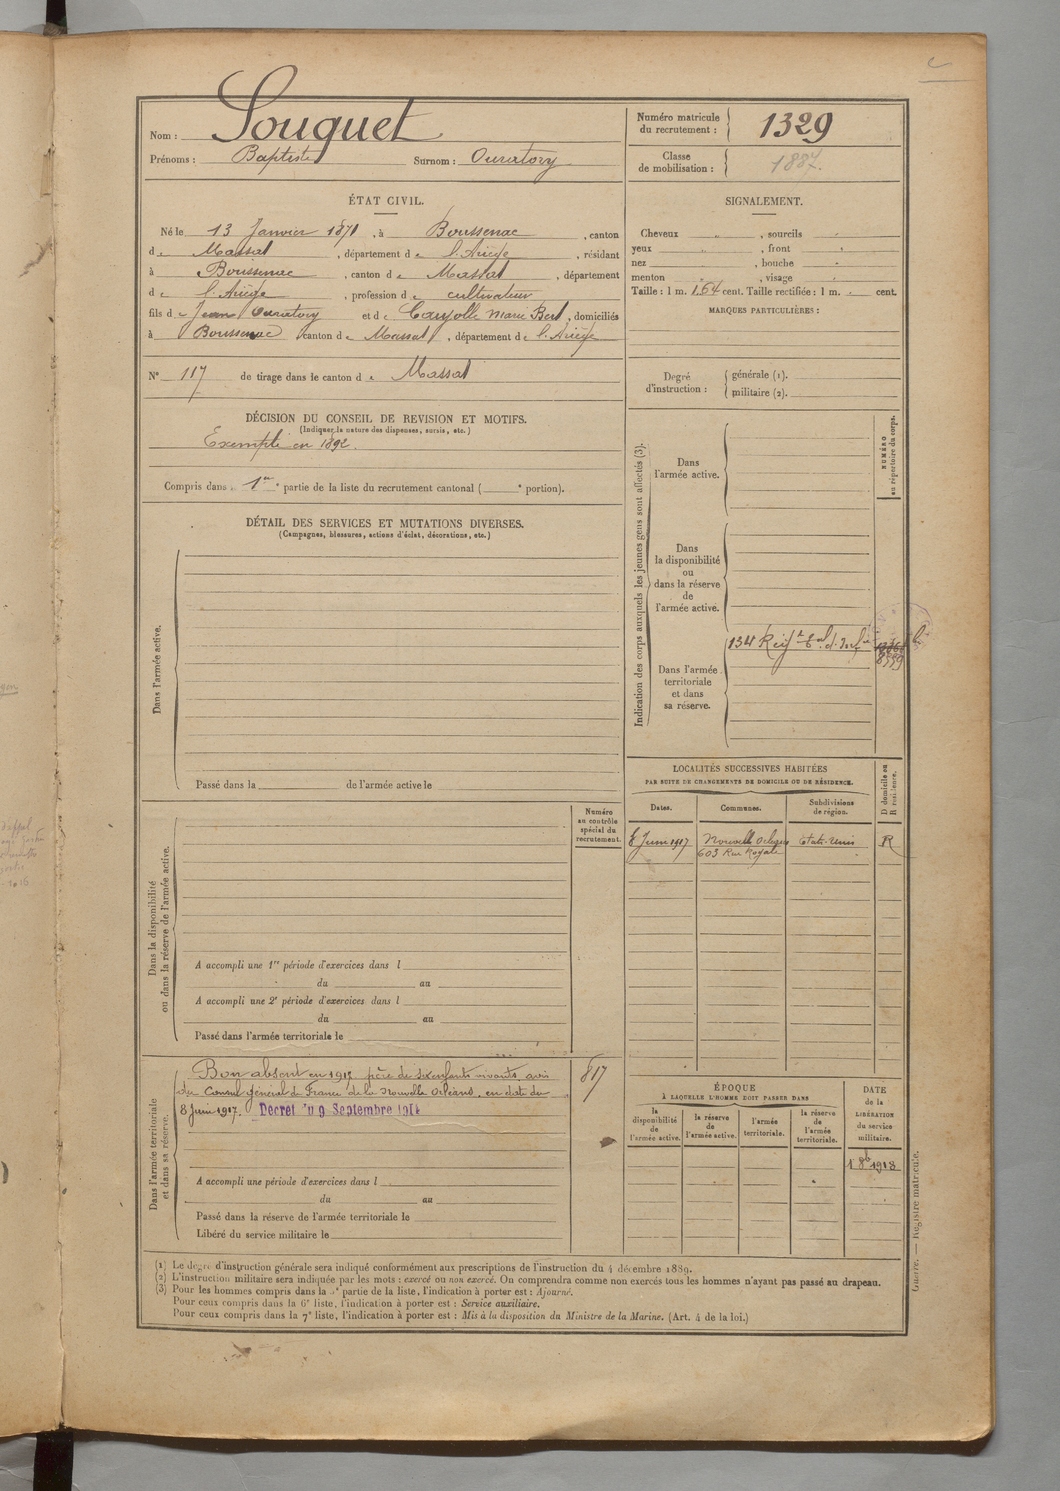 Nom : Souquet
Prénoms : Baptiste Surnom : Ouratory
Numéro matricule du recrutement : 1329
Classe de mobilisation : 1887.
ÉTAT CIVIL.
Né le 13 Janvier 1871, à Boussenac, canton
de Massat, département de l'Ariège, résidant
à Boussenac, canton de Massat, département
de l'Ariège, profession de cultivateur
fils de Jean Ouratory et de Caujolle Marie, domiciliés
à Boussenac canton de Massat, département de l'Ariège
N° 117 de tirage dans le canton de Massat
DÉCISION DU CONSEIL DE REVISION ET MOTIFS.
(Indiquer la nature des dispenses, sursis, etc.)
Exempté en 1892.
Compris dans la 1re partie de la liste du recrutement cantonal ( e portion).
SIGNALEMENT.
Cheveux , sourcils
yeux , front
nez , bouche
menton , visage
Taille : 1 m. 1,64 cent. Taille rectifiée : 1 m. cent.
MARQUES PARTICULIÈRES :
Degré d'instruction : générale (1).
militaire (2).
DÉTAIL DES SERVICES ET MUTATIONS DIVERSES.
(Campagnes, blessures, actions d'éclat, décorations, etc.)
Dans l'armée active.
Passé dans la de l'armée active le
Indication des corps auxquels les jeunes gens sont affectés (3).
NUMÉRO au répertoire du corps.
Dans l'armée active.
Dans la disponibilité ou dans la réserve de l'armée active.
Dans l'armée territoriale et dans sa réserve.
134 Regt
Numéro au contrôle spécial du recrutement.
Dans la disponibilité ou dans la réserve de l'armée active.
A accompli une 1re période d'exercices dans l
du au
A accompli une 2e période d'exercices dans l
du au
Passé dans l'armée territoriale le
LOCALITÉS SUCCESSIVES HABITÉES
PAR SUITE DE CHANGEMENTS DE DOMICILE OU DE RÉSIDENCE.
D domicile ou R résidence.
Dates. Communes. Subdivisions de région.
8 Juin 1917 Nouvelle Orléans Etats-Unis R
603 Rue Royale
Dans l'armée territoriale et dans sa réserve.
Bon absent en 1912 père de six enfants vivants, avis
du Consul général de France de la Nouvelle Orléans, en date du
8 Juin 1917. Décret du 9 Septembre 1914
817
A accompli une période d'exercices dans l
du au
Passé dans la réserve de l'armée territoriale le
Libéré du service militaire le
ÉPOQUE
À LAQUELLE L'HOMME DOIT PASSER DANS
la disponibilité de l'armée active.
la réserve de l'armée active.
l'armée territoriale.
la réserve de l'armée territoriale.
DATE de la LIBÉRATION du service militaire.
1 8b 1918
(1) Le degré d'instruction générale sera indiqué conformément aux prescriptions de l'instruction du 4 décembre 1889.
(2) L'instruction militaire sera indiquée par les mots : exercé ou non exercé. On comprendra comme non exercés tous les hommes n'ayant pas passé au drapeau.
(3) Pour les hommes compris dans la 5e partie de la liste, l'indication à porter est : Ajourné.
Pour ceux compris dans la 6e liste, l'indication à porter est : Service auxiliaire.
Pour ceux compris dans la 7e liste, l'indication à porter est : Mis à la disposition du Ministre de la Marine. (Art. 4 de la loi.)
Guerre. — Registre matricule.